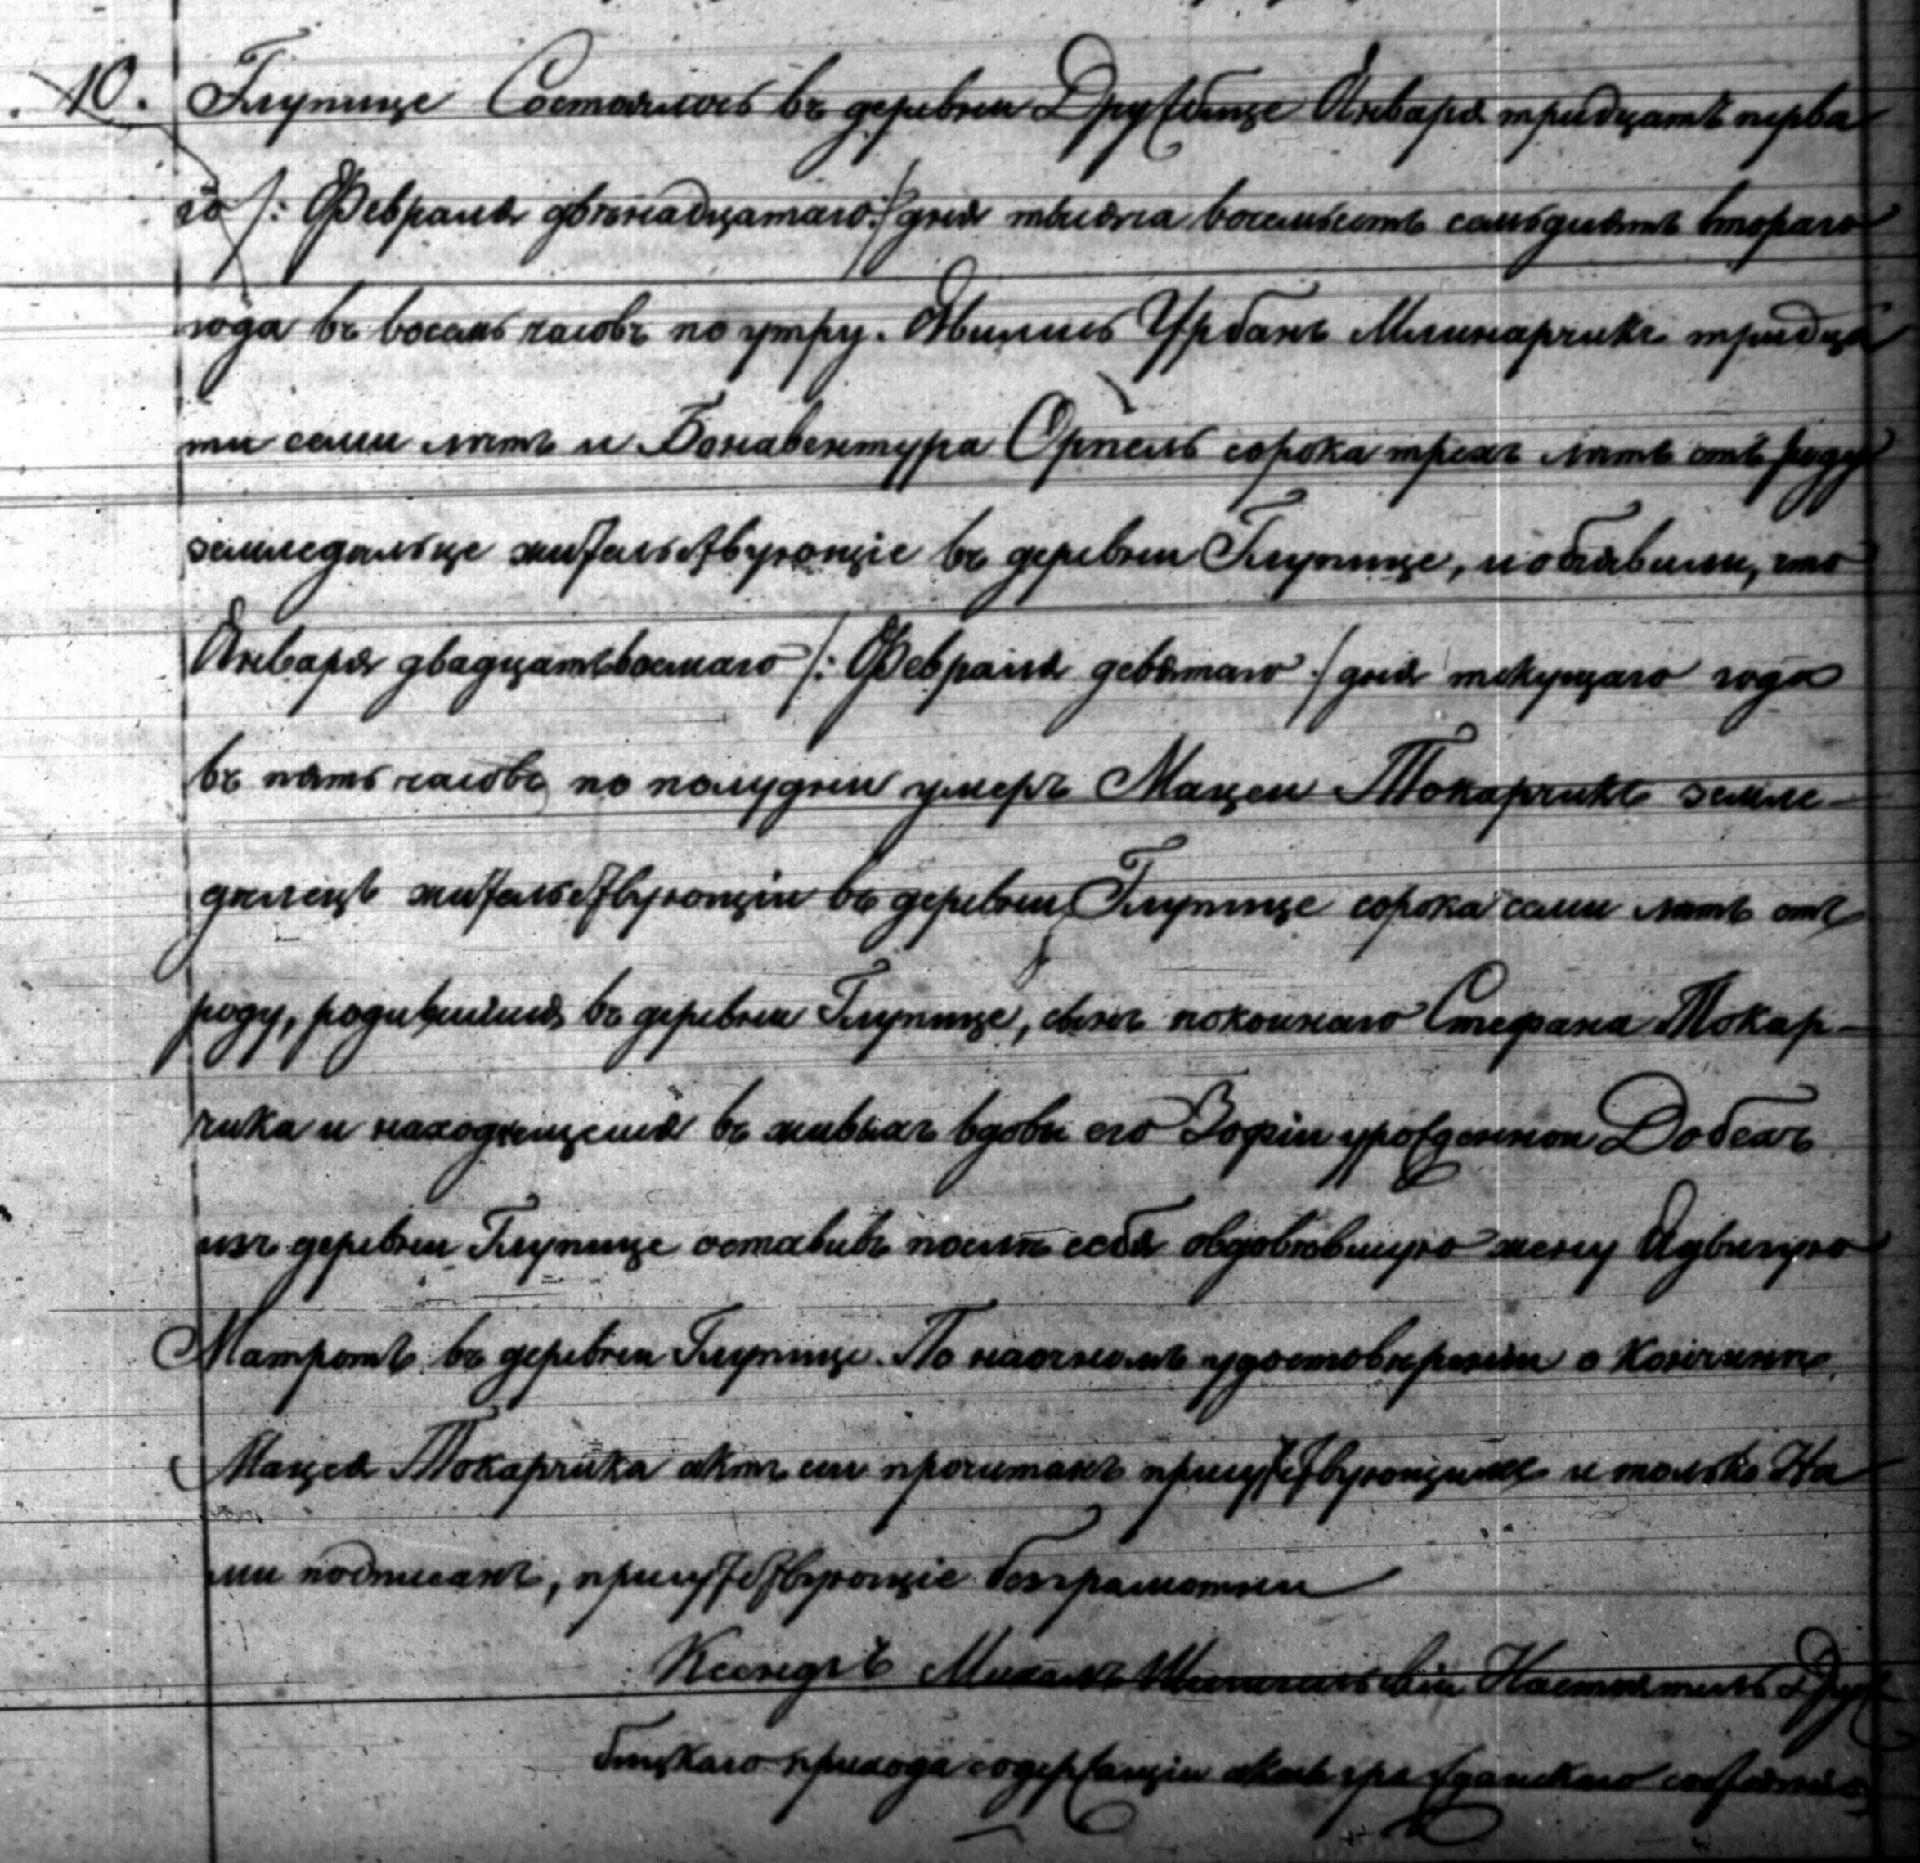 10. Глупице Состоялось въ деревни Дружбице Января тридцать перва
го /: Февраля двѣнадцатаго :/ дня тысяча восемьсотъ семьдесятъ втораго
года въ восемь часовъ по утру. Явились Урбанъ Млинарчикъ тридца
ти семи лѣтъ и Бонавентура Орпель сорока трехъ лѣтъ отъ роду
земледѣльце жительствующіе въ деревни Глупице, и обявили, что
Января двадцатьвосмаго /: Февраля девятаго :/ дня текущаго года
въ пять часовъ по полудни умеръ Мацеи Токарчикъ земле-
дѣлецъ жительствующіи въ деревни Глупице сорока семи лѣтъ отъ
роду, родившійся въ деревни Глупице, сынъ покоинаго Стефана Токар-
чика и находящеися въ живыхъ вдовы его Зофіи урожденнои Добехъ
изъ деревни Глупице оставивъ послѣ себя овдовѣвшую жену Ядвигую
Матротъ въ деревни Глупице. По наочномъ удостовѣреніи о Кончинѣ
Мацея Токарчика актъ сеи прочитанъ присутствующимъ и только На
ми подписанъ, присутствующіе безграмотни
Ксендзъ Михалъ Настоятель Друж
бицкаго прихода содержащіи акты гражданскаго состоянія